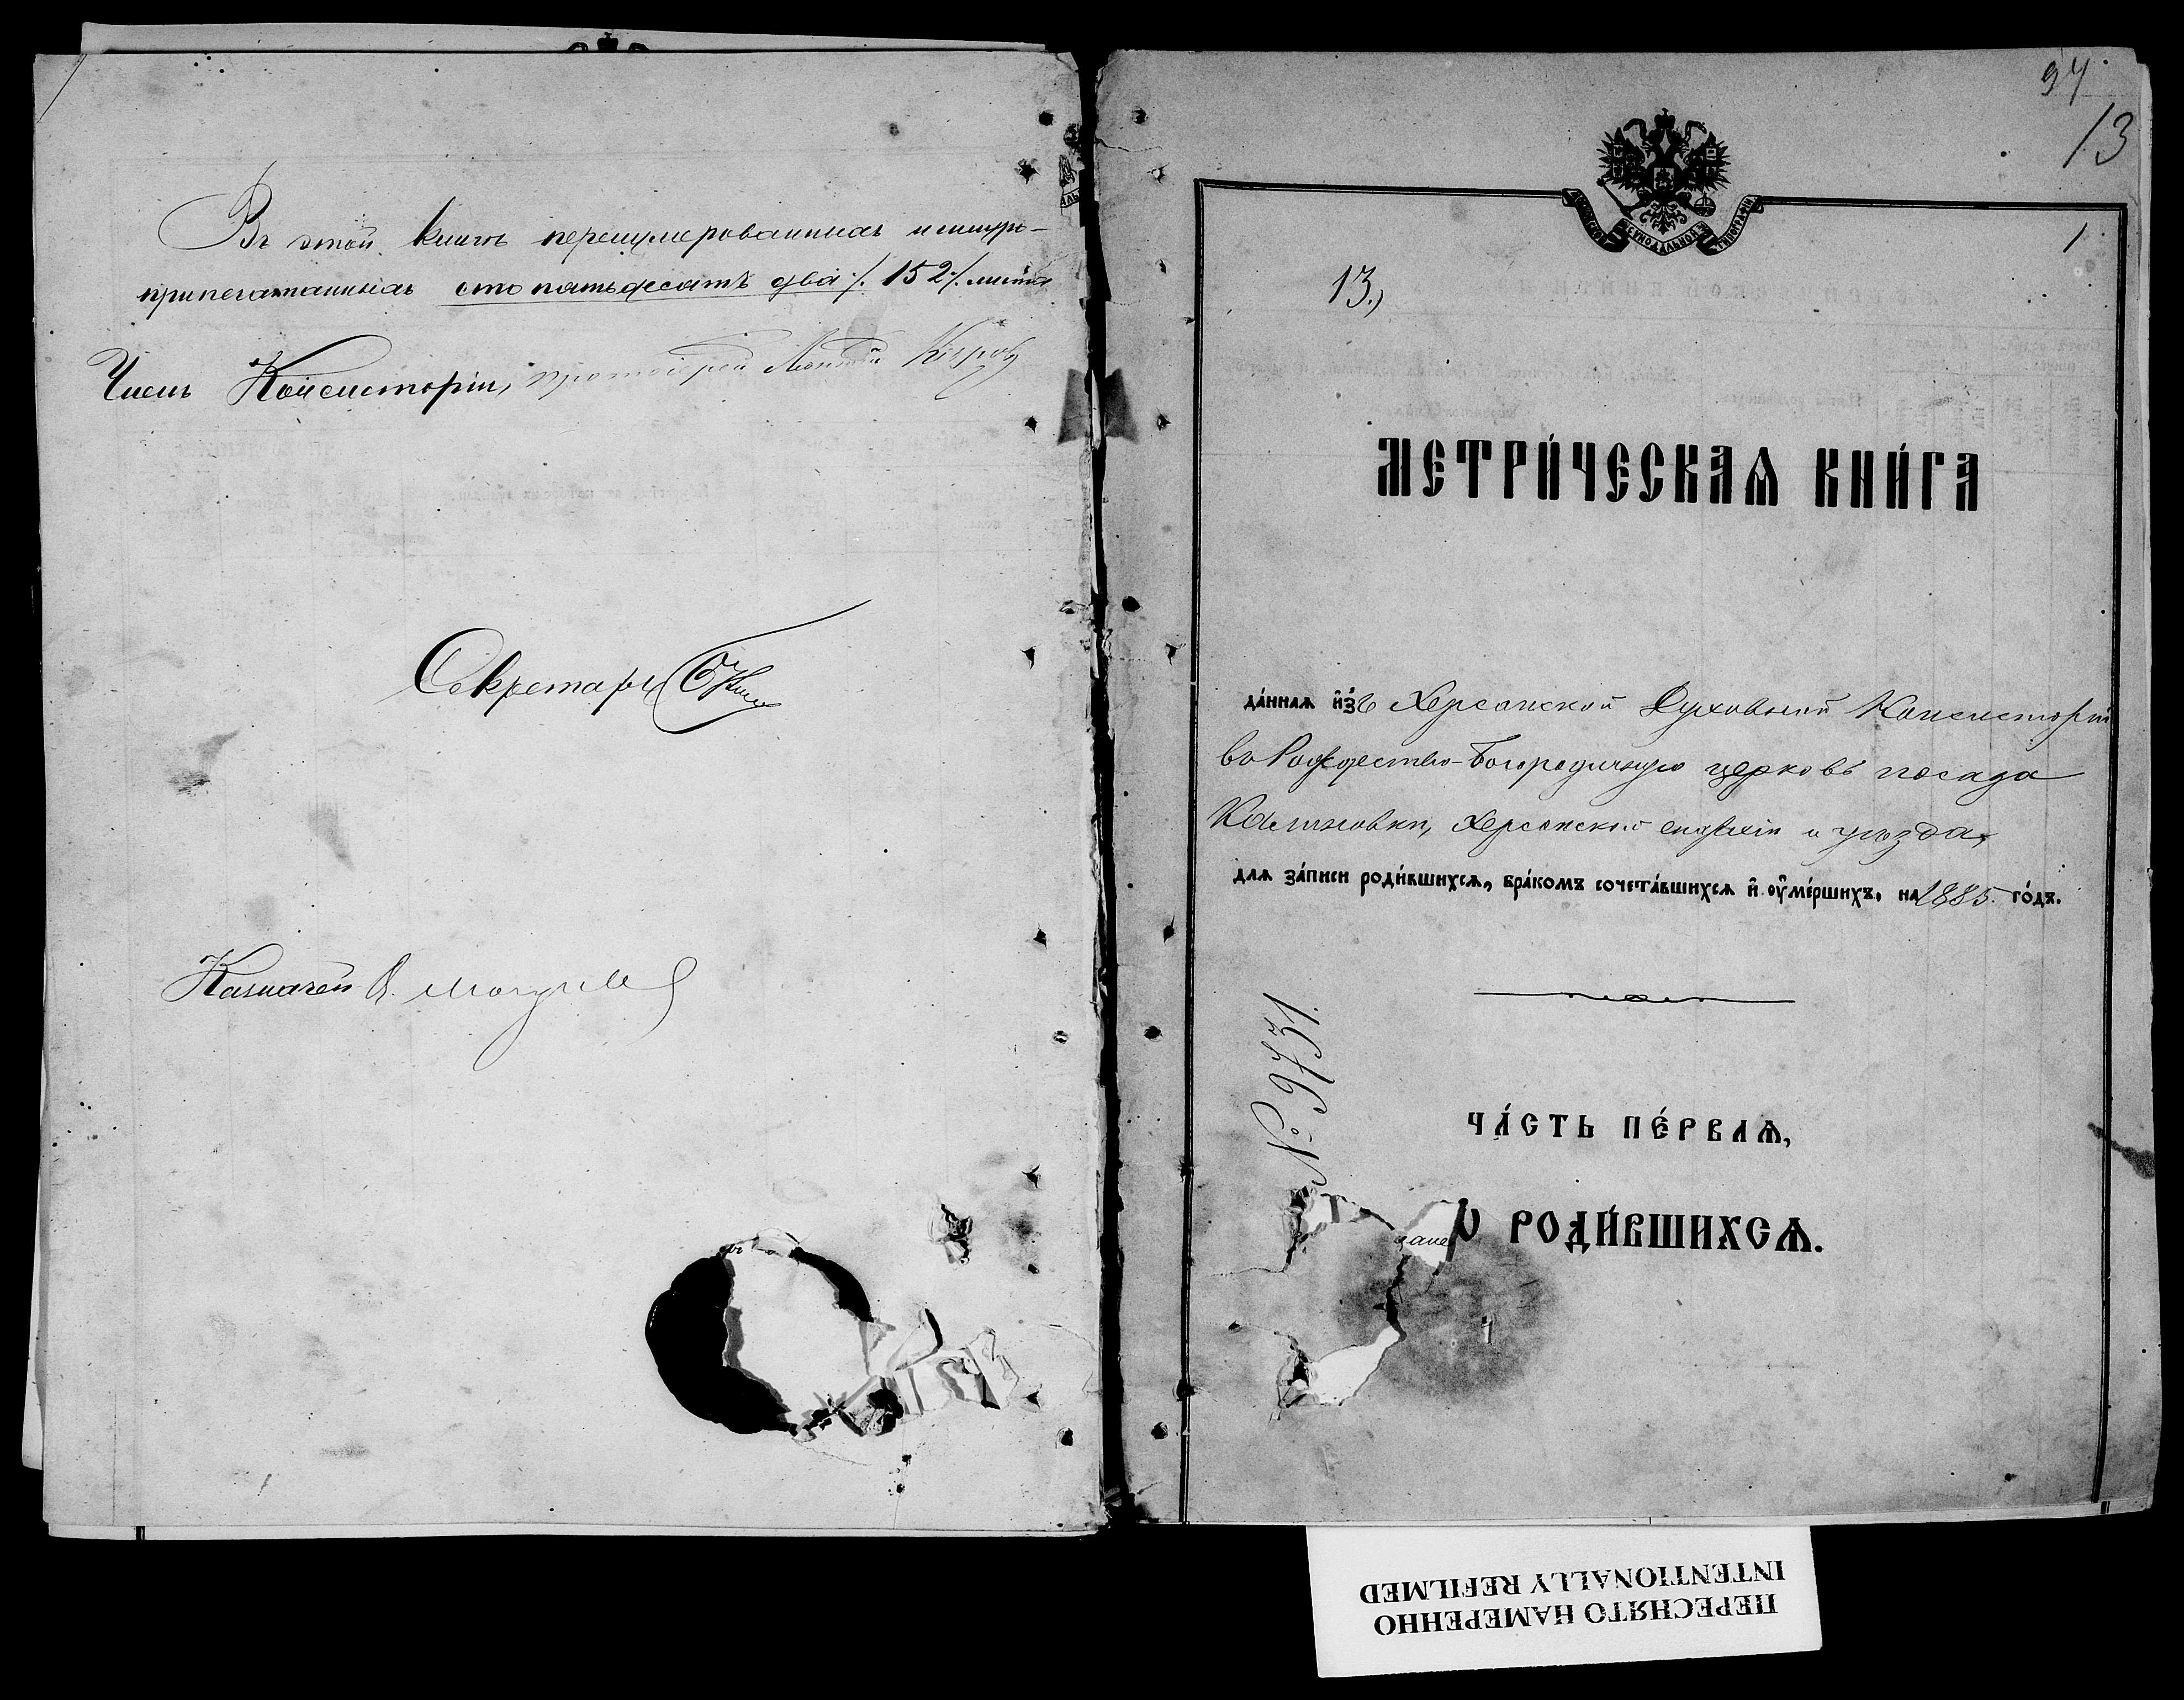 Въ этой книгѣ перенумерованныхъ и шнуро-
припечатанныхъ сто пятьдесятъ два ./. 152 ./. листа
Членъ Консисторіи, протоіерей
Секретарь
Казначей
94
13
1
13.)
МЕТРИ́ЧЕСКАѦ КНИ́ГА
да́ннаѧ и҆зъ Херсонской Духовной Консисторіи
въ Рождество-Богородичную церковь посада
Калиновки, Херсонской епархіи и уѣзда,
длѧ за́писи роди́вшихсѧ, бра́комъ сочета́вшихсѧ и҆ ѹ҆ме́ршихъ, на 1885. го́дъ.
№ 9731.
ЧА́СТЬ ПЕ́РВАѦ,
Ѡ РОДИ́ВШИХСѦ.
ПЕРЕСНЯТО НАМЕРЕННО
INTENTIONALLY REFILMED